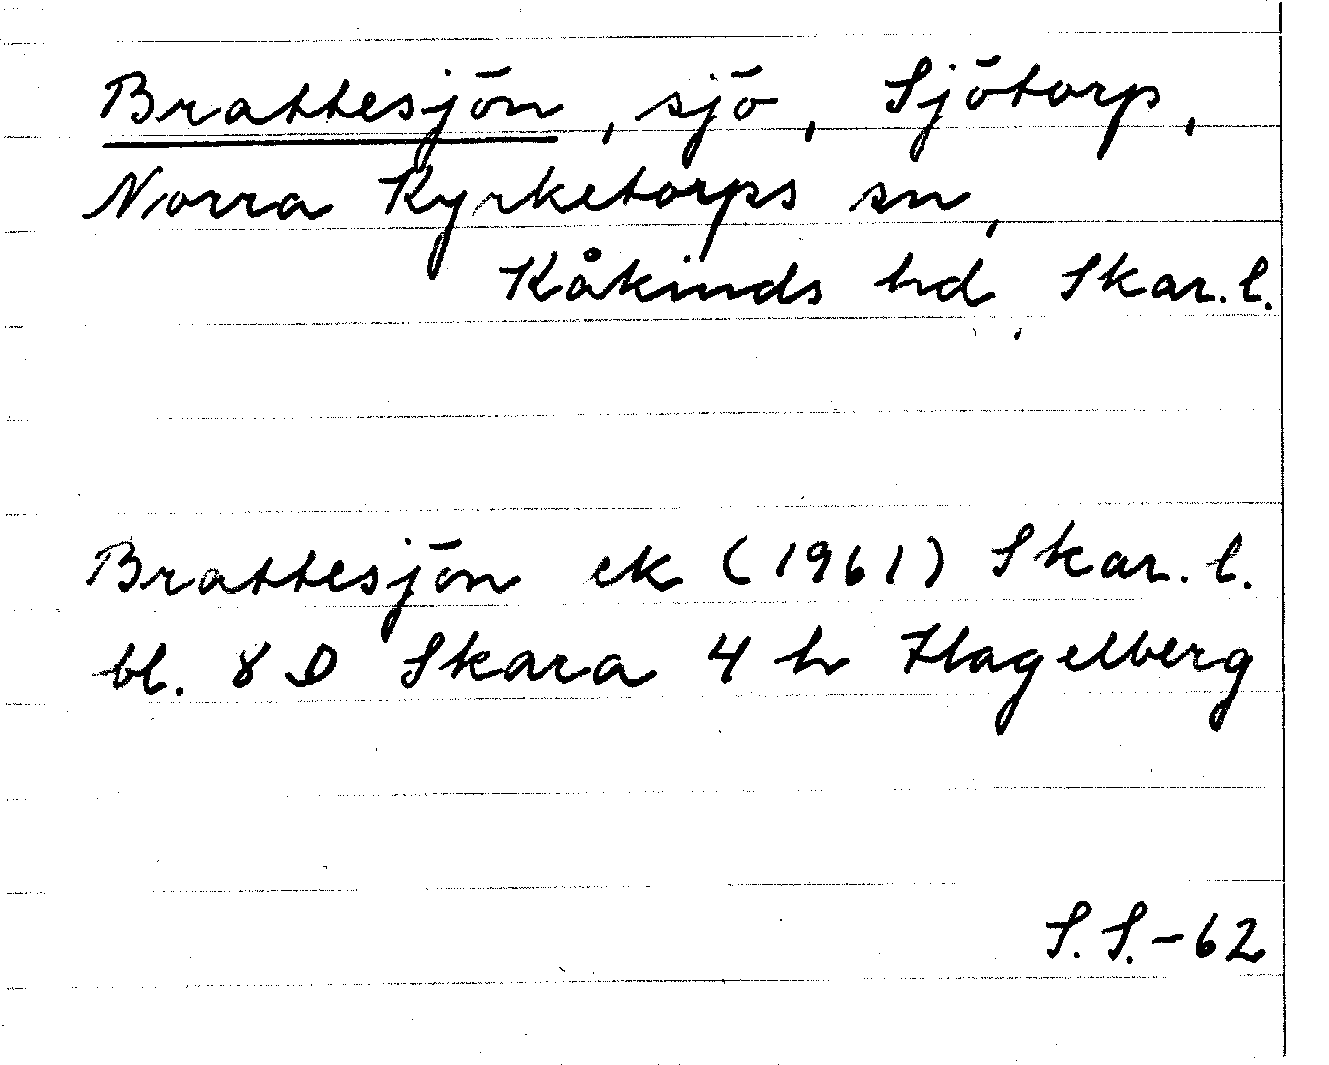 Brattesjön, sjö, Sjötorp,
Norra Kyrketorps sn,
Kåkinds hd, Skar. l.
Brattesjön ek (1961) Skar. l.
bl. 8 D Skara 4 h Hagelberg
S. S. - 62